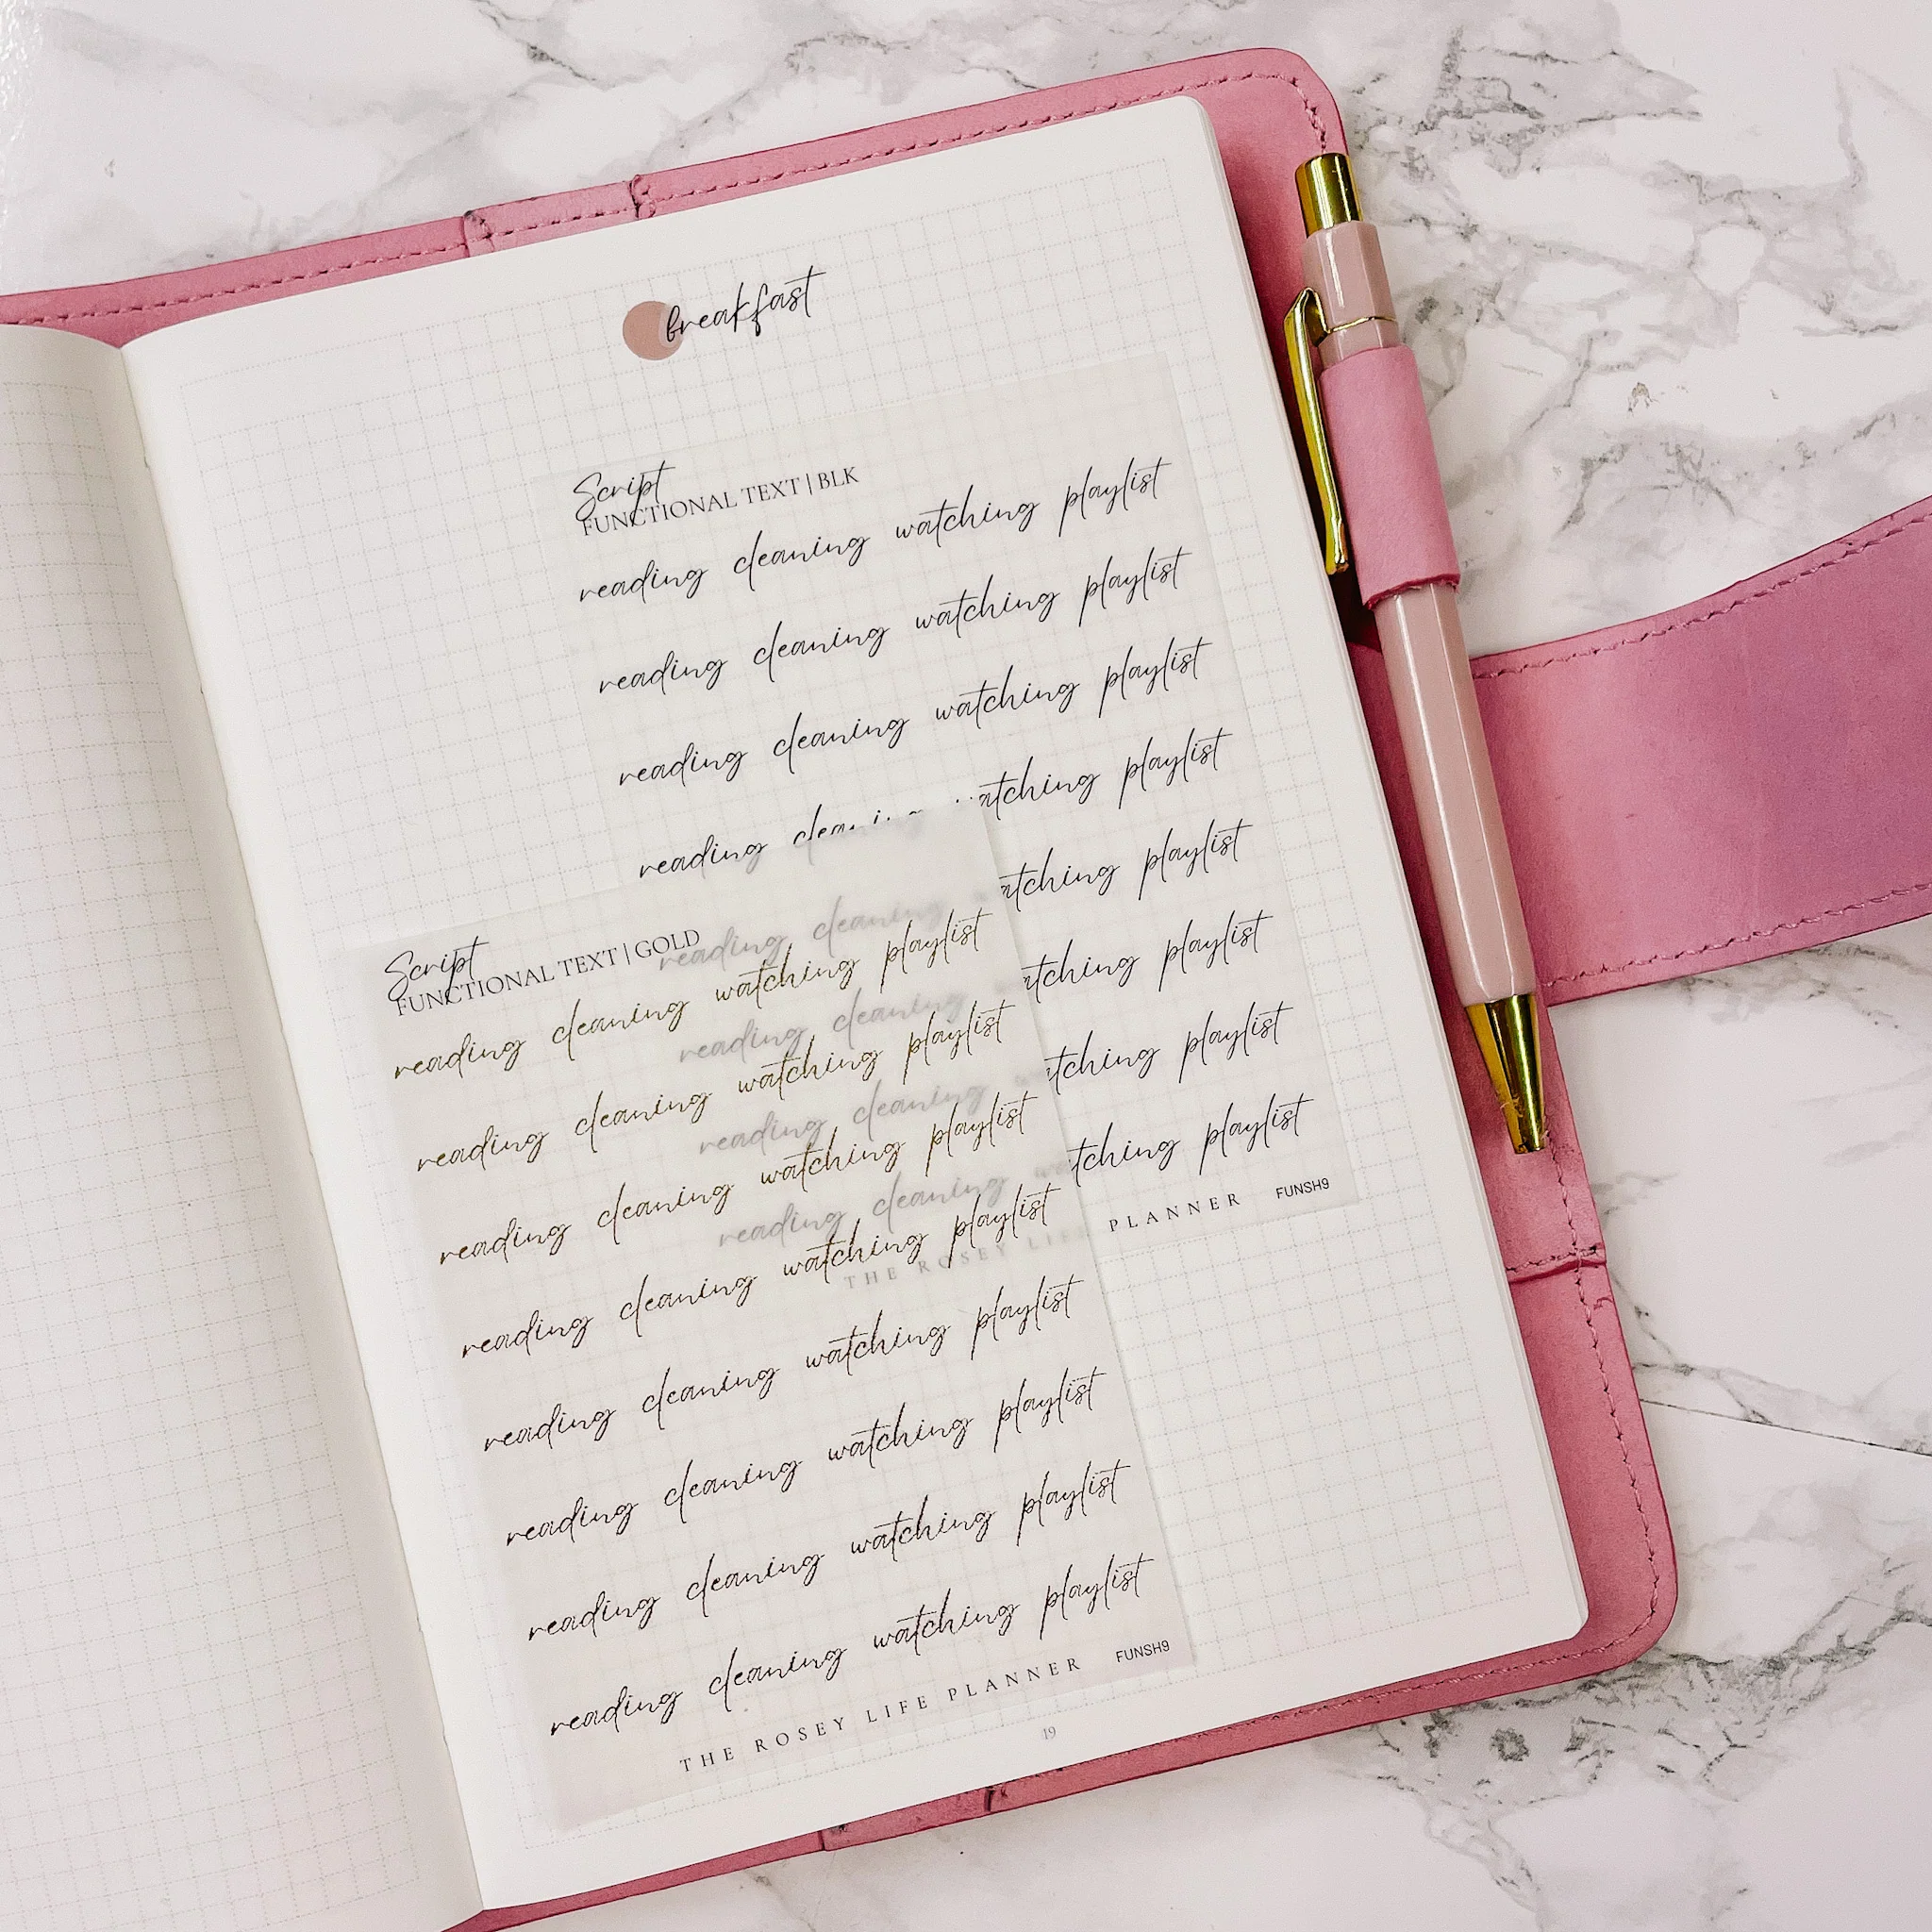 breakfast
Script
FUNCTIONAL TEXT | BLK
reading cleaning watching playlist
reading cleaning watching playlist
reading cleaning watching playlist
reading cleaning watching playlist
reading cleaning watching playlist
reading cleaning watching playlist
reading cleaning watching playlist
reading cleaning watching playlist
THE ROSEY LIFE PLANNER FUNSH9
Script
FUNCTIONAL TEXT | GOLD
reading cleaning watching playlist
reading cleaning watching playlist
reading cleaning watching playlist
reading cleaning watching playlist
reading cleaning watching playlist
reading cleaning watching playlist
reading cleaning watching playlist
reading cleaning watching playlist
THE ROSEY LIFE PLANNER FUNSH9
19